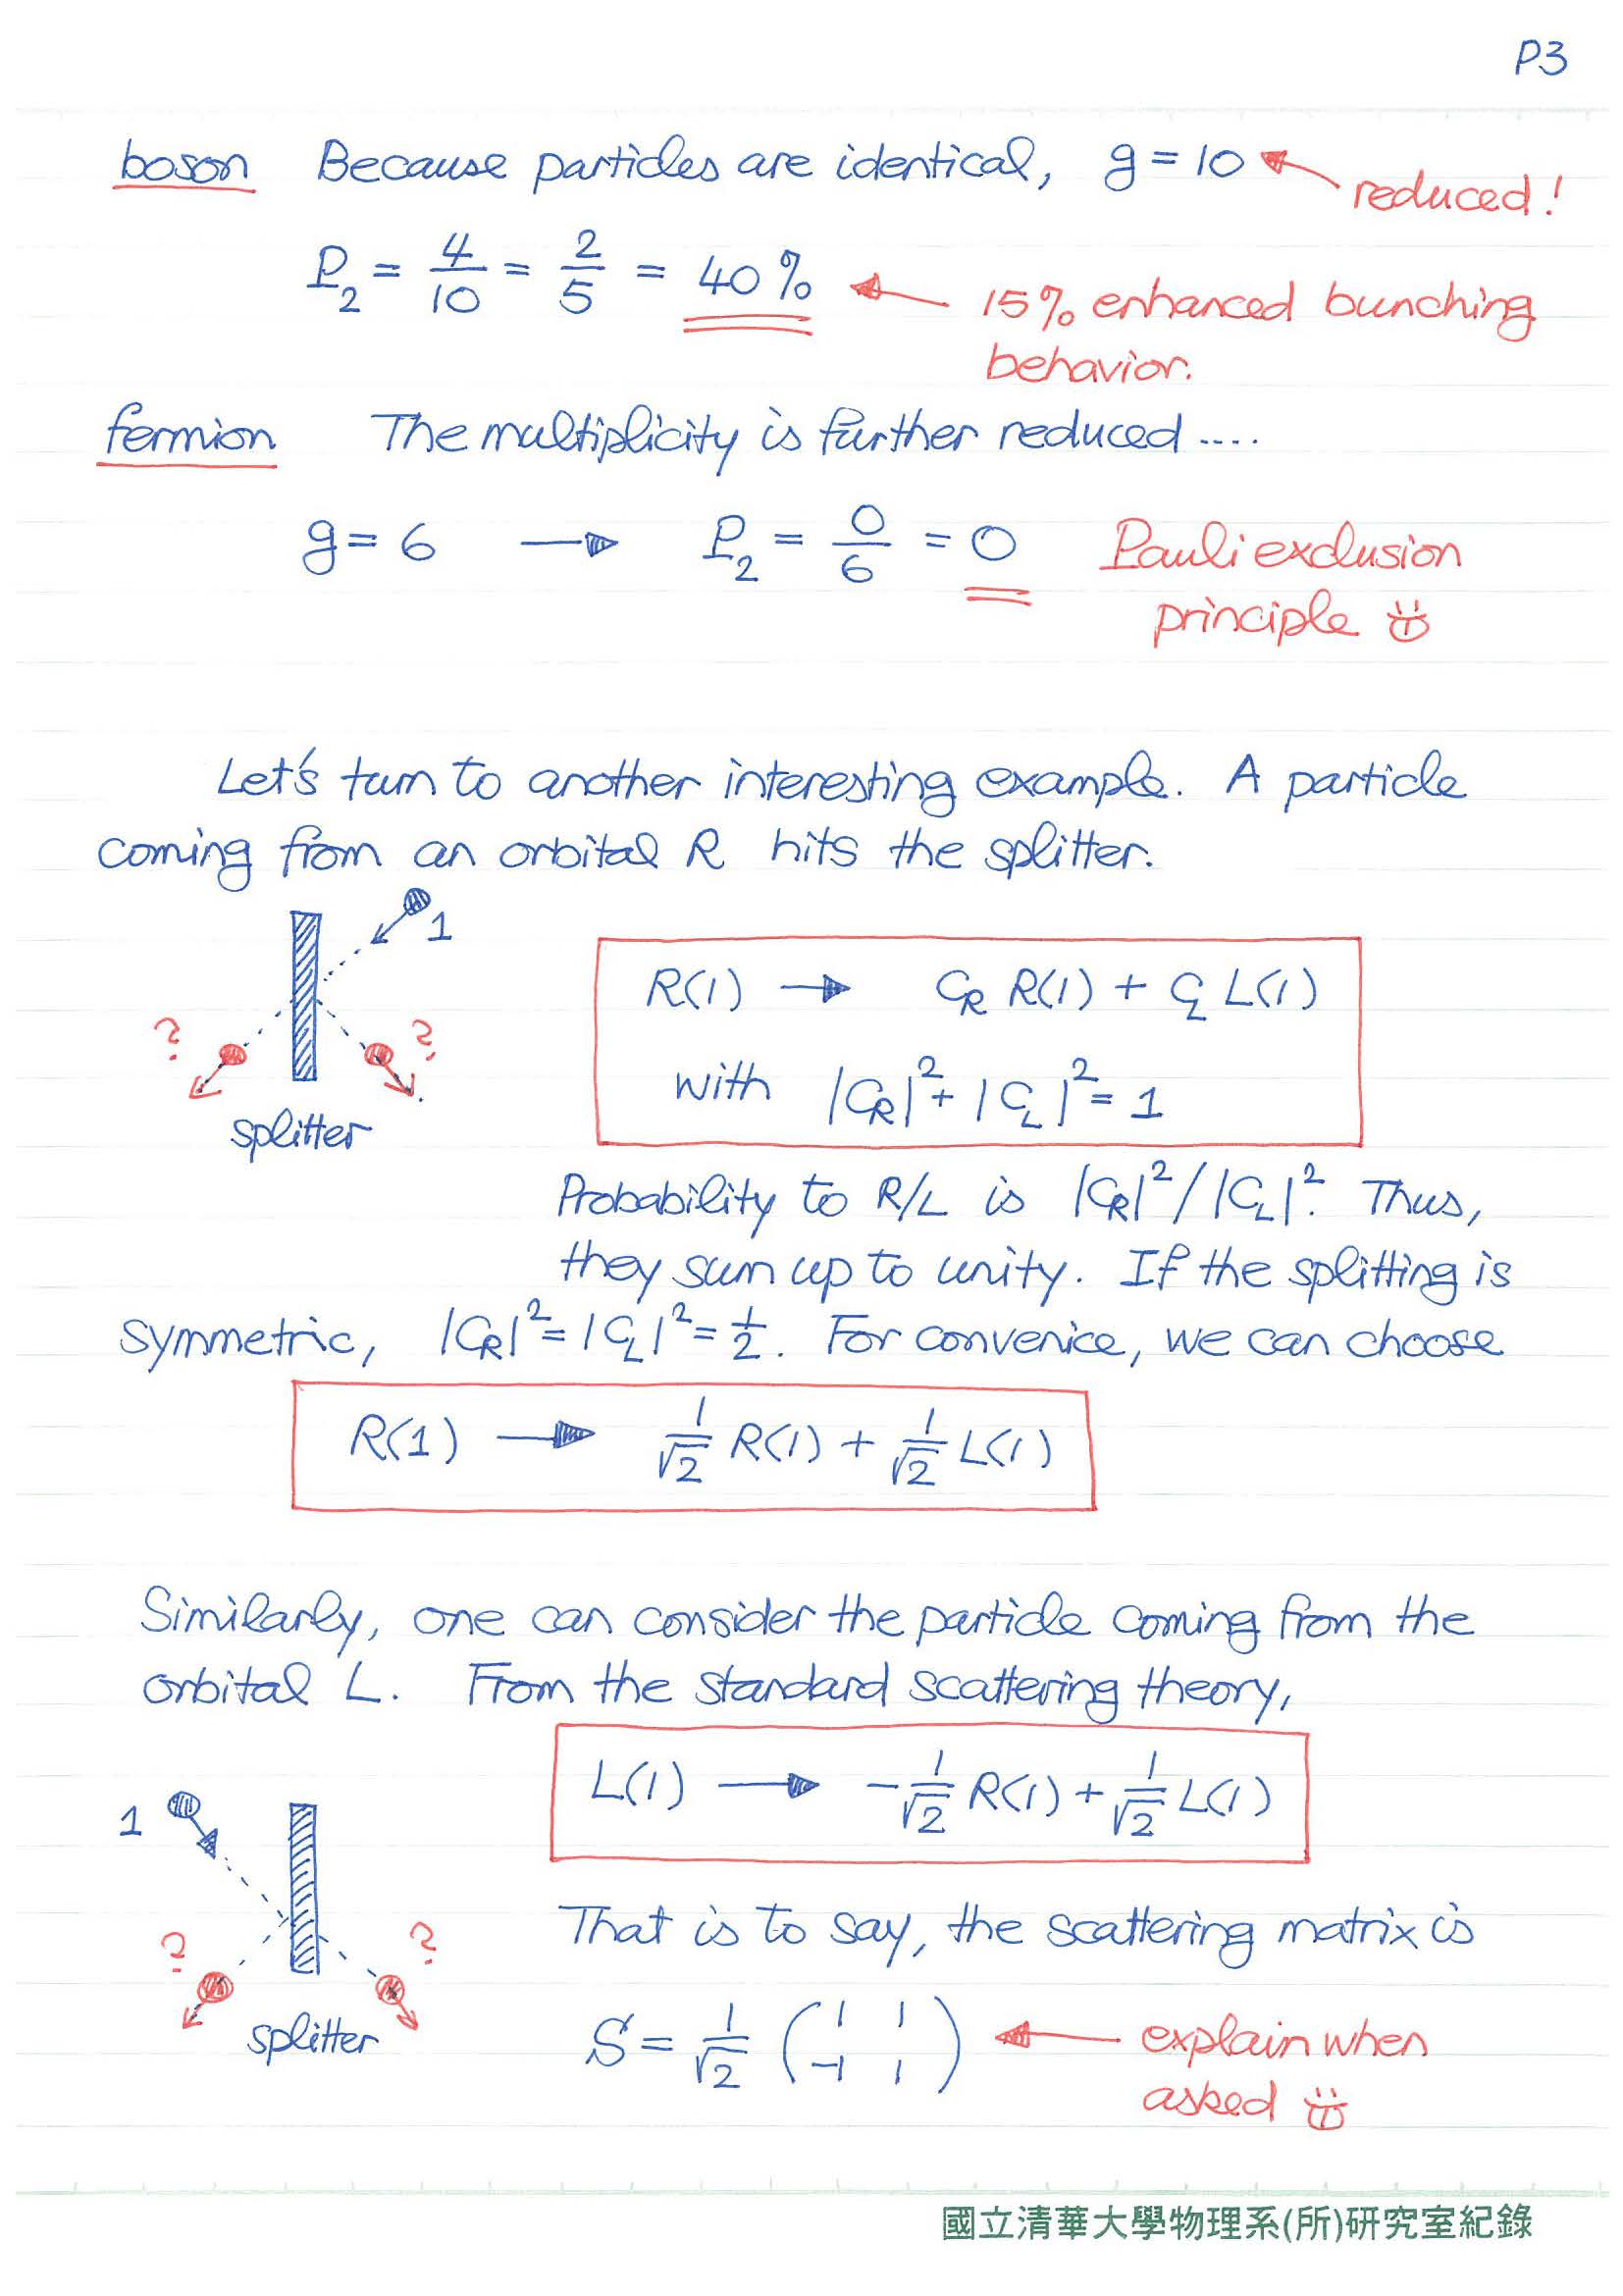 P3
boson Because particles are identical, g = 10 reduced!
P₂ = 4/10 = 2/5 = 40% 15% enhanced bunching
behavior.
fermion The multiplicity is further reduced ....
g = 6 → P₂ = 0/6 = 0 Pauli exclusion
principle
Let's turn to another interesting example. A particle
coming from an orbital R hits the splitter.
1
R(1) → C_R R(1) + C_L L(1)
? ?
with |C_R|² + |C_L|² = 1
splitter
Probability to R/L is |C_R|²/|C_L|². Thus,
they sum up to unity. If the splitting is
symmetric, |C_R|² = |C_L|² = 1/2. For convenice, we can choose
R(1) → 1/√2 R(1) + 1/√2 L(1)
Similarly, one can consider the particle coming from the
orbital L. From the standard scattering theory,
L(1) → -1/√2 R(1) + 1/√2 L(1)
1
That is to say, the scattering matrix is
? ?
splitter
S = 1/√2 (1 1
-1 1) explain when
asked
國立清華大學物理系(所)研究室紀錄